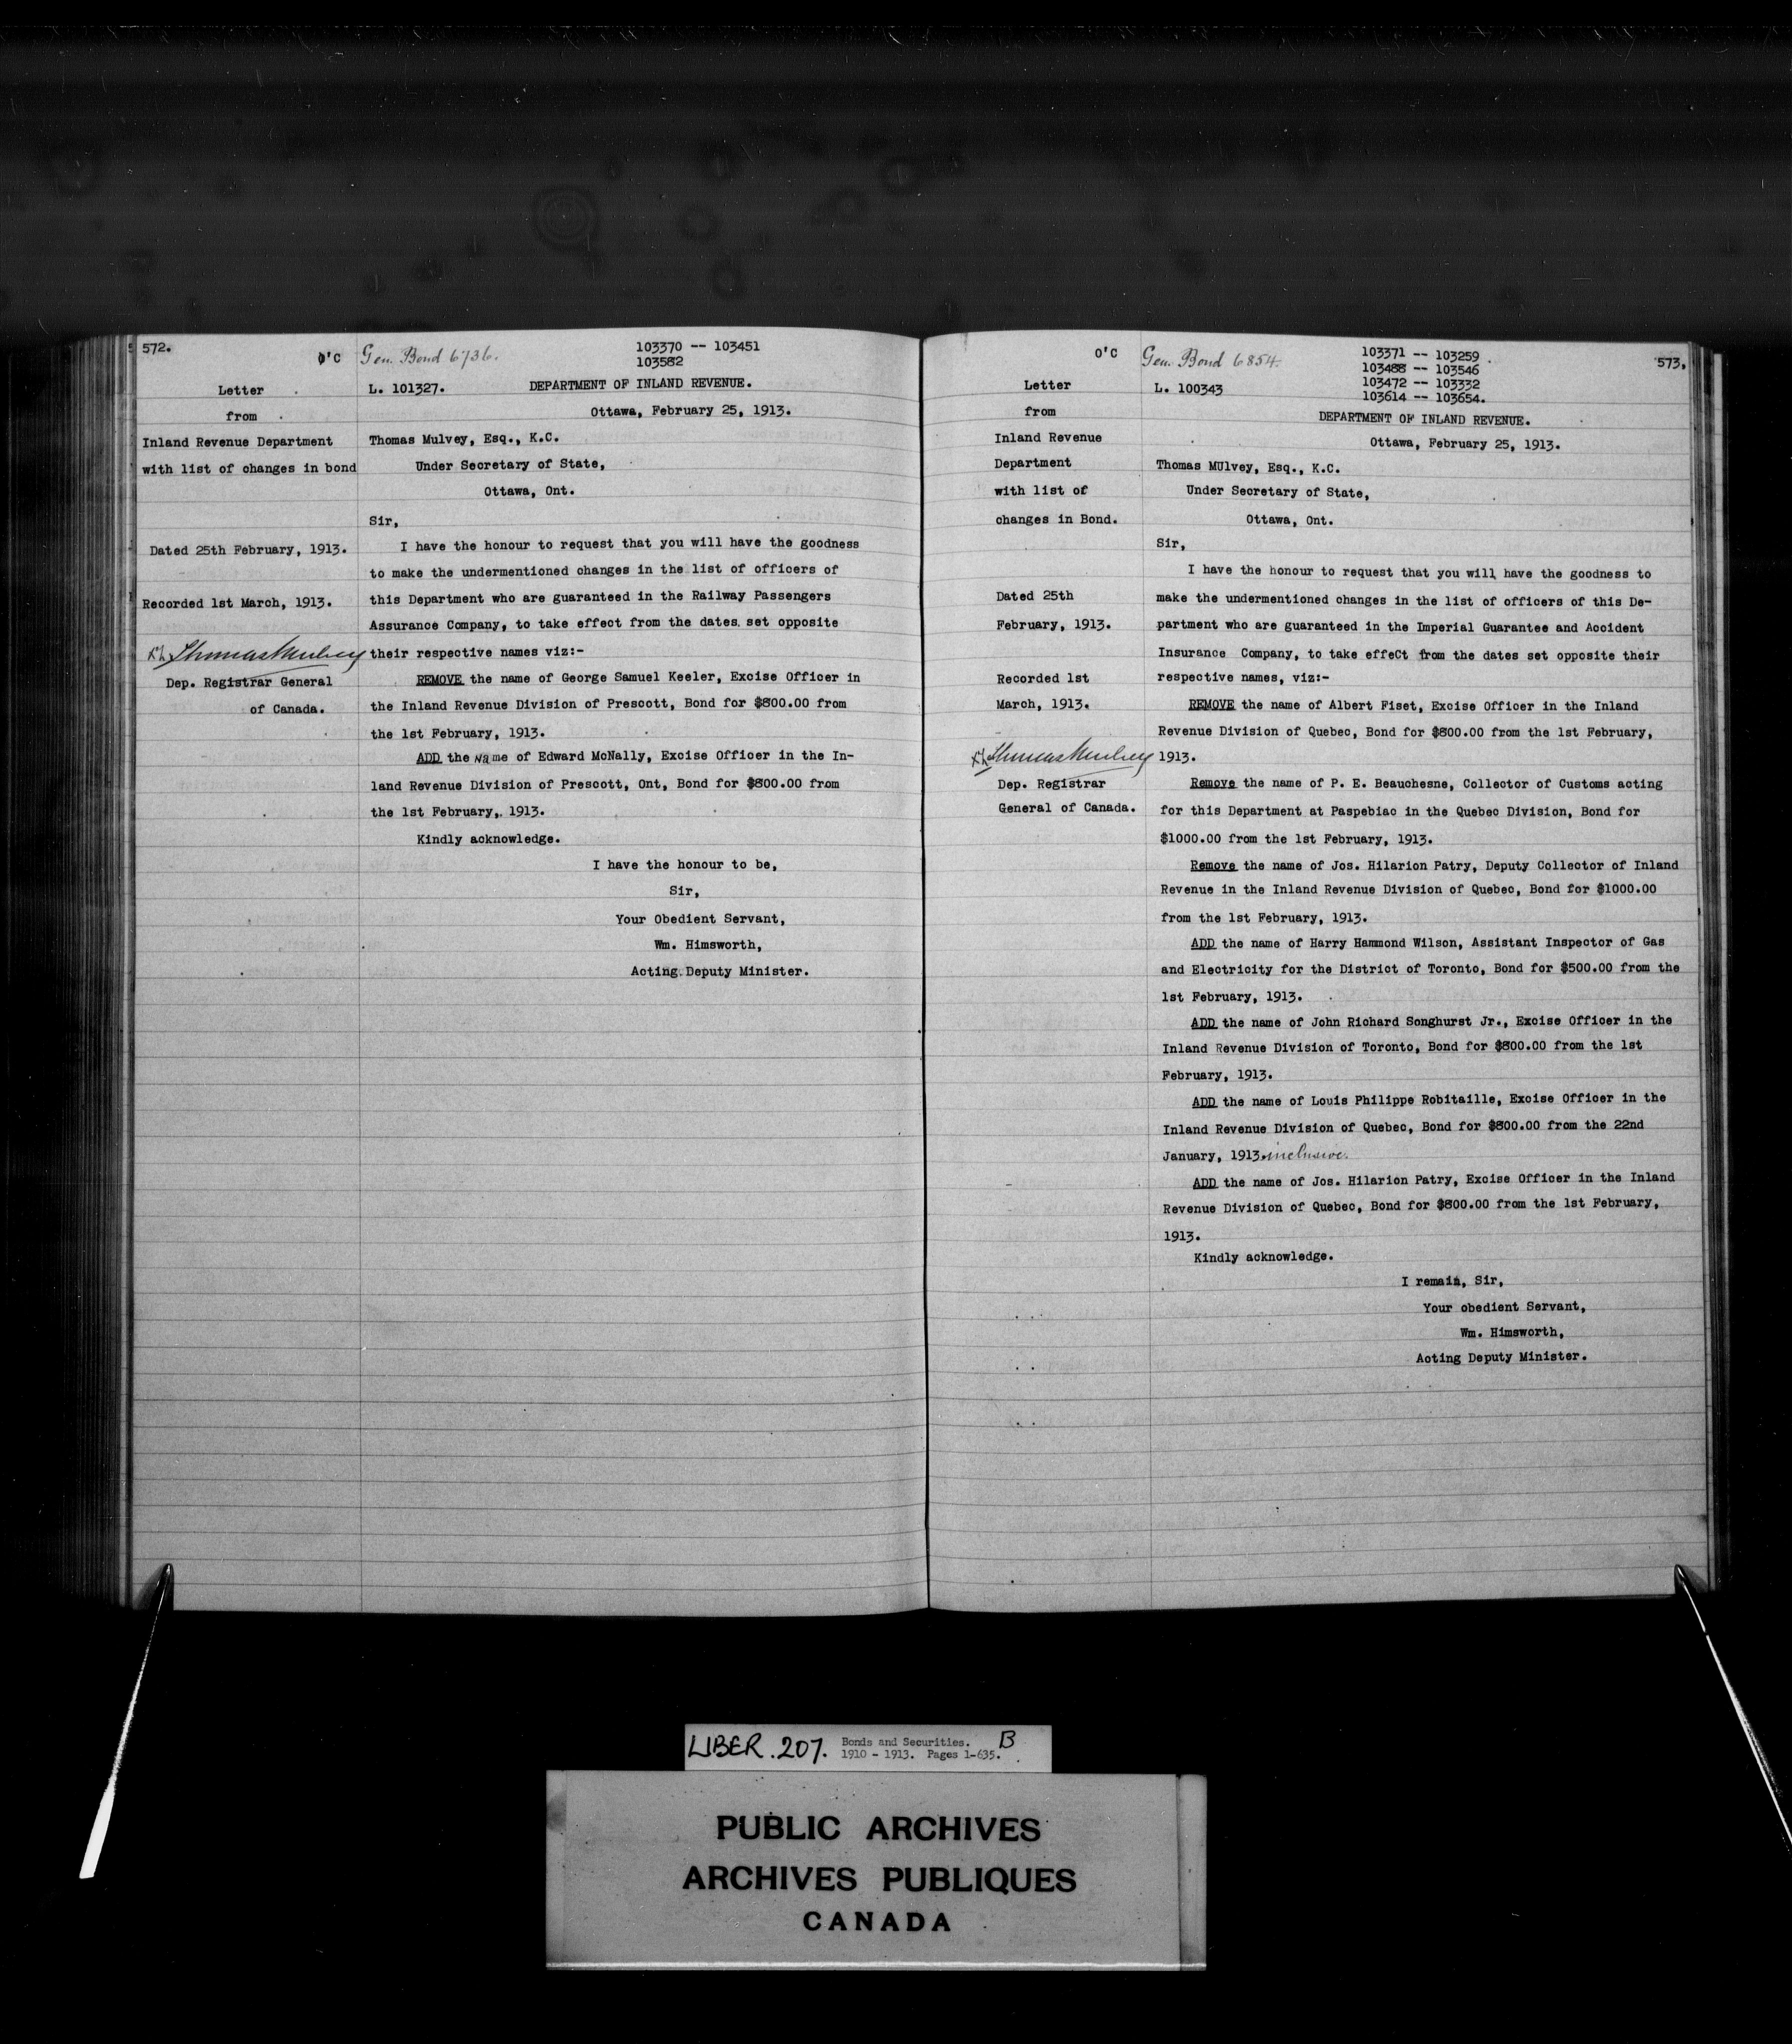 572.
O'C
Gen. Bond 6736.
103370 -- 103451
103582
Letter
from
Inland Revenue Department
with list of changes in bond
Dated 25th February, 1913.
Recorded 1st March, 1913.
Thomas Mulvey
Dep. Registrar General
of Canada.
L. 101327. DEPARTMENT OF INLAND REVENUE.
Ottawa, February 25, 1913.
Thomas Mulvey, Esq., K.C.
Under Secretary of State,
Ottawa, Ont.
Sir,
I have the honour to request that you will have the goodness
to make the undermentioned changes in the list of officers of
this Department who are guaranteed in the Railway Passengers
Assurance Company, to take effect from the dates set opposite
their respective names viz:-
REMOVE the name of George Samuel Keeler, Excise Officer in
the Inland Revenue Division of Prescott, Bond for $800.00 from
the 1st February, 1913.
ADD the name of Edward McNally, Excise Officer in the In-
land Revenue Division of Prescott, Ont, Bond for $800.00 from
the 1st February, 1913.
Kindly acknowledge.
I have the honour to be,
Sir,
Your Obedient Servant,
Wm. Himsworth,
Acting Deputy Minister.
O'C
Gen. Bond 6854.
103371 -- 103259
103488 -- 103546
103472 -- 103332
103614 -- 103654.
573,
Letter
from
Inland Revenue
Department
with list of
changes in Bond.
Dated 25th
February, 1913.
Recorded 1st
March, 1913.
Thomas Mulvey
Dep. Registrar
General of Canada.
L. 100343
DEPARTMENT OF INLAND REVENUE.
Ottawa, February 25, 1913.
Thomas MUlvey, Esq., K.C.
Under Secretary of State,
Ottawa, Ont.
Sir,
I have the honour to request that you will have the goodness to
make the undermentioned changes in the list of officers of this De-
partment who are guaranteed in the Imperial Guarantee and Accident
Insurance Company, to take effeCt from the dates set opposite their
respective names, viz:-
REMOVE the name of Albert Fiset, Excise Officer in the Inland
Revenue Division of Quebec, Bond for $800.00 from the 1st February,
1913.
Remove the name of P. E. Beauchesne, Collector of Customs acting
for this Department at Paspebiac in the Quebec Division, Bond for
$1000.00 from the 1st February, 1913.
Remove the name of Jos. Hilarion Patry, Deputy Collector of Inland
Revenue in the Inland Revenue Division of Quebec, Bond for $1000.00
from the 1st February, 1913.
ADD the name of Harry Hammond Wilson, Assistant Inspector of Gas
and Electricity for the District of Toronto, Bond for $500.00 from the
1st February, 1913.
ADD the name of John Richard Songhurst Jr., Excise Officer in the
Inland Revenue Division of Toronto, Bond for $800.00 from the 1st
February, 1913.
ADD the name of Louis Philippe Robitaille, Excise Officer in the
Inland Revenue Division of Quebec, Bond for $800.00 from the 22nd
January, 1913.inclusive.
ADD the name of Jos. Hilarion Patry, Excise Officer in the Inland
Revenue Division of Quebec, Bond for $800.00 from the 1st February,
1913.
Kindly acknowledge.
I remain, Sir,
Your obedient Servant,
Wm. Himsworth,
Acting Deputy Minister.
LIBER. 207. Bonds and Securities. B
1910 - 1913. Pages 1-635.
PUBLIC ARCHIVES
ARCHIVES PUBLIQUES
CANADA